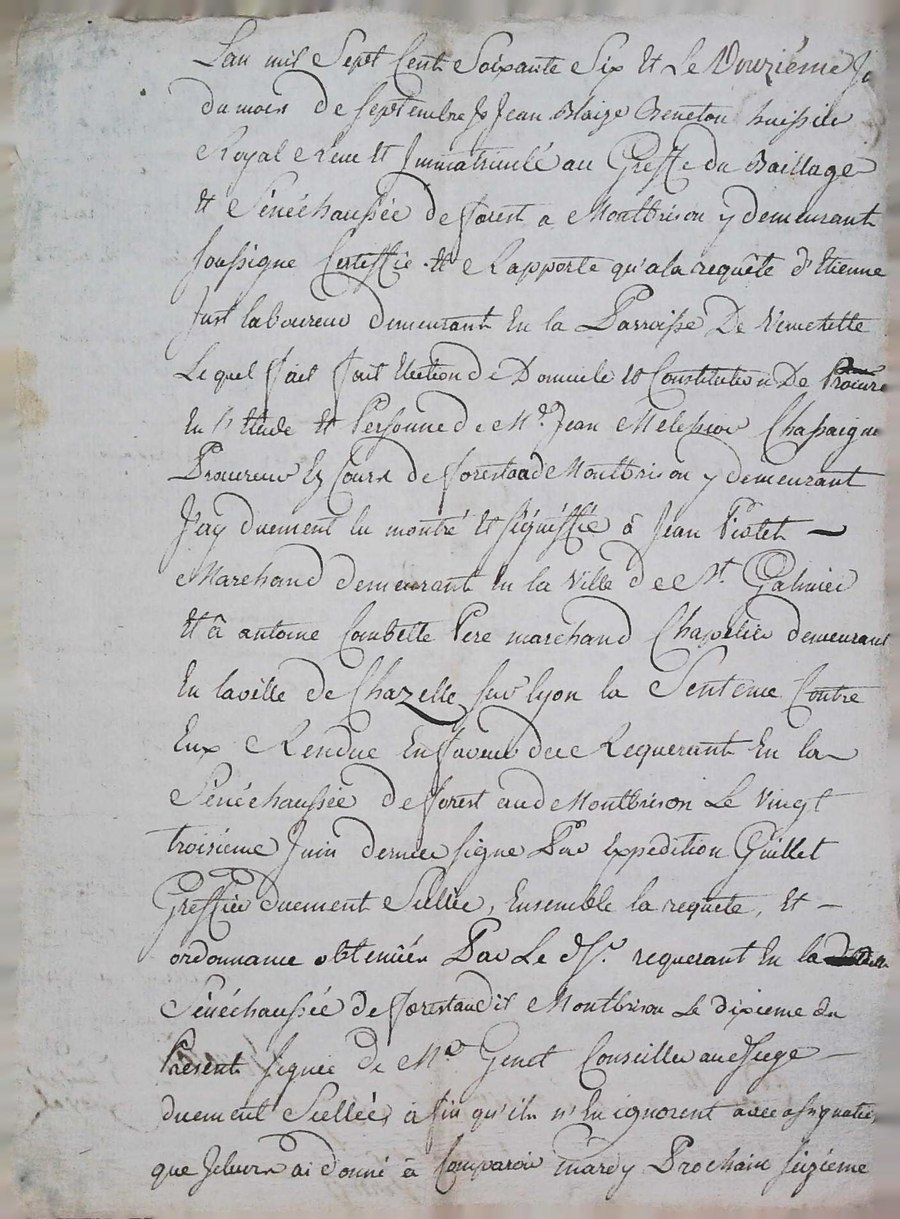 L'an mil Sept Cent Soixante Six et Le Douziéme Jo
du mois de Septembre Je Jean Blaize Beneton huissier
Royal Reçu et Immatriculé au Greffe du Baillage
et Sénéchaussée de forest a Montbrison y demeurant
soussigne Certiffie et Rapporte qu'a la requête d'Etienne
Just laboureur demeurant En la Parroisse De
Lequel fait Election de Domicile et Constitution De Procure
En l'Etude et Personne de Me. Jean Chassaigne
Procureur Es Cours de forest aud Montbrison y demeurant
J'ay duement lu montré et signiffié â Jean Piotet
Marchand demeurant En la Ville de St. Galmier
Et â antoine Combette Pere marchand Chapelier demeurant
En la ville de Chazelle sur lyon la Sentence Contre
Eux Rendue En faveur du Requerant En la
Sénéchaussée de forest aud Montbrison Le Vingt
troisiéme Juin dernier signe Par Expedition Guillet
Greffier duement Sellée, Ensemble la requete, Et
ordonnance obtenüe Par Le dit Sr. requerant En la
Sénéchaussée de forest audit Montbrison Le dixieme du
Présent signée de Mr Genet Conseiller au Siege
duement Scellée, à fin qu'ils n'En ignorent avec assignation
que Je leur ai donné â Comparoir mardy Prochain seizieme